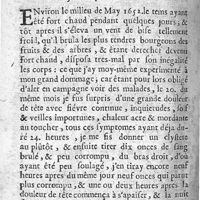 ENviron le milieu de May 1652. le tems ayant
été fort chaud pendant quelques jours; &
tôt apres il s'éleva un vent de bise tellement
froid, qu'il brula les plus tendres bourgeons des
fruits & des arbres, & étant derechef devenu
fort chaud, disposa tres-mal par son inégalité
les corps: ce que j'ay moy-même experimenté à
mon grand dommage; car étant pour lors obligé
d'aler en campagne voir des malades, le 20. du
même mois je fus surpris d'une grande douleur
de tête avec fiévre continuë, inquietudes, soif
& veilles importunes, chaleur acre & mordante
au toucher, tous ces symptomes ayant déja duré
24. heures, je me fis donner un clystere
au plutôt, & ensuite tirer dix onces de sang
brulé, & peu corrompu, du bras droit, d'où
ayant été peu soulagé, j'en tiray encore neuf
heures apres du même jour neuf onces qui parut
plus corrompu, & une ou deux heures apres la
douleur de tête commença à s'apaiser, & la nuit